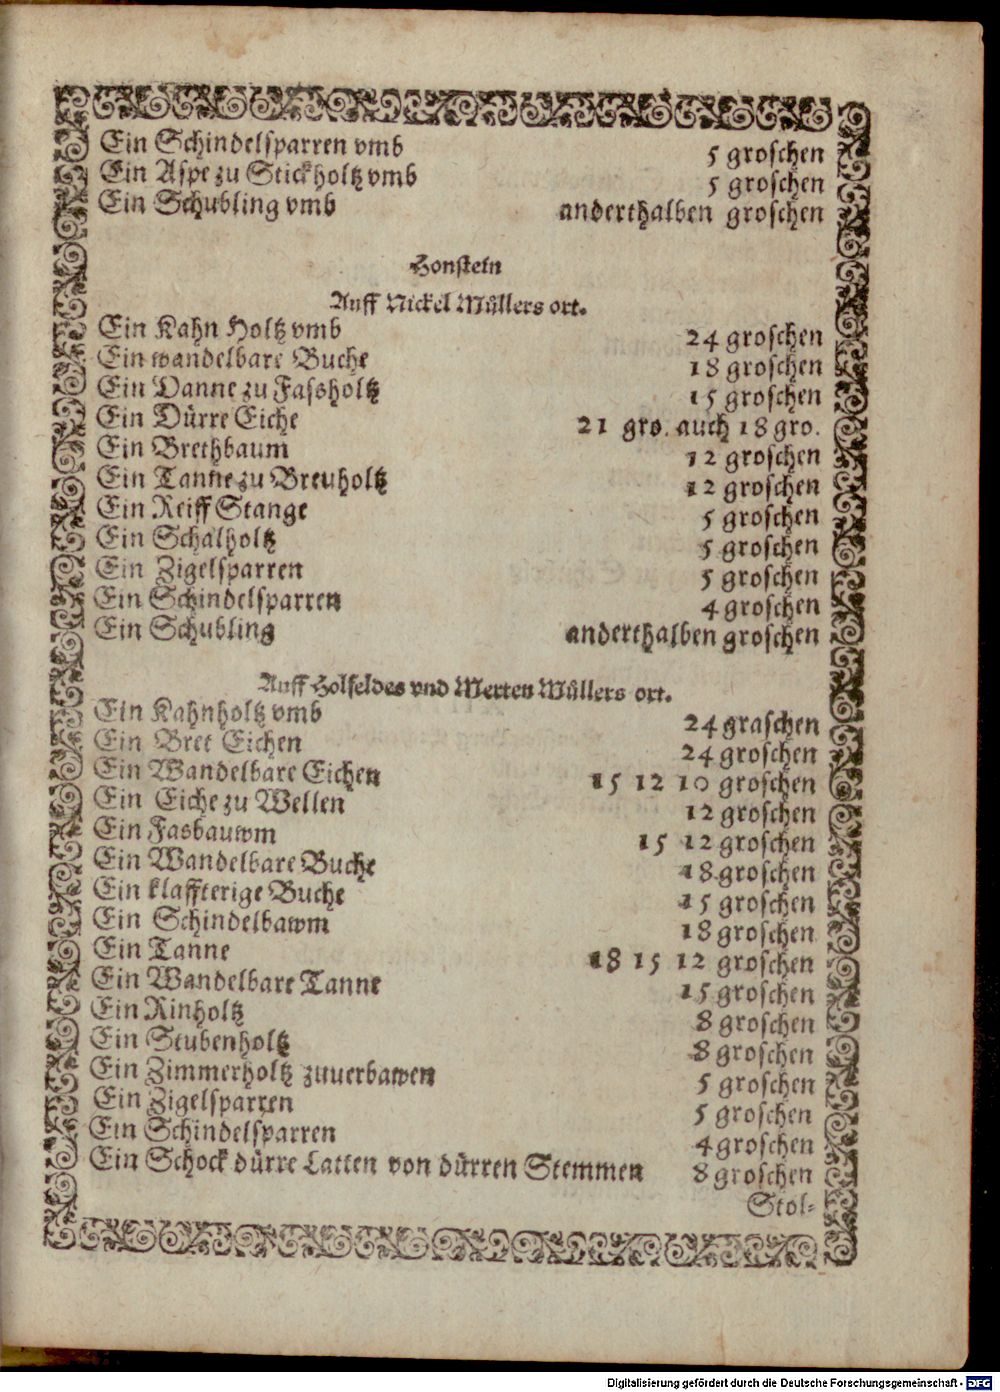 Ein Schindelsparren vmb 5 groschen
Ein Aspe zu Stickholtz vmb 5 groschen
Ein Schubling vmb anderthalben groschen
Honstein
Auff Nickel Müllers ort.
Ein Kahn Holtz vmb 24 groschen
Ein wandelbare Buche 18 groschen
Ein Danne zu Fassholtz 15 groschen
Ein Dürre Eiche 21 gro. auch 18 gro.
Ein Brethbaum 12 groschen
Ein Tanne zu Breuholtz 12 groschen
Ein Reiff Stange 5 groschen
Ein Schalholtz 5 groschen
Ein Zigelsparren 5 groschen
Ein Schindelsparren 4 groschen
Ein Schubling anderthalben groschen
Auff Holfeldes vnd Merten Müllers ort.
Ein Kahnholtz vmb 24 graschen
Ein Bret Eichen 24 groschen
Ein Wandelbare Eichen 15 12 10 groschen
Ein Eiche zu Wellen 12 groschen
Ein Fasbauwm 15 12 groschen
Ein Wandelbare Buche 18 groschen
Ein klaffterige Buche 15 groschen
Ein Schindelbawm 18 groschen
Ein Tanne 18 15 12 groschen
Ein Wandelbare Tanne 15 groschen
Ein Rinholtz 8 groschen
Ein Stubenholtz 8 groschen
Ein Zimmerholtz zuuerbawen 5 groschen
Ein Zigelsparren 5 groschen
Ein Schindelsparren 4 groschen
Ein Schock dürre Latten von dürren Stemmen 8 groschen
Stol-
Digitalisierung gefördert durch die Deutsche Forschungsgemeinschaft - DFG